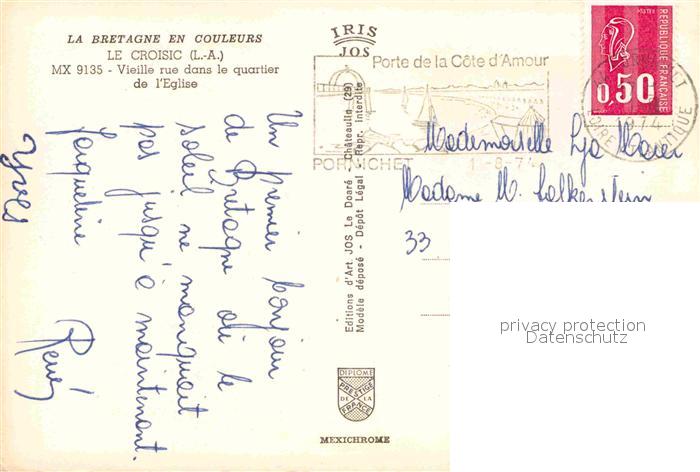 LA BRETAGNE EN COULEURS
LE CROISIC (L.-A.)
MX 9135 - Vieille rue dans le quartier
de l'Eglise
Un premier bonjour
de Bretagne où le
soleil ne manquait
pas jusqu'à maintenant.
Jacqueline René
Yves
IRIS
JOS
Editions d'Art JOS Le Doaré - Châteaulin (29)
Modèle déposé - Dépôt Légal - Repr. interdite
DIPLOME
PRESTIGE
DE LA
FRANCE
MEXICHROME
Porte de la Côte d'Amour
PORNICHET
1-8-74
POSTES
REPUBLIQUE FRANÇAISE
0,50
Mademoiselle
Madame M.
33
privacy protection
Datenschutz